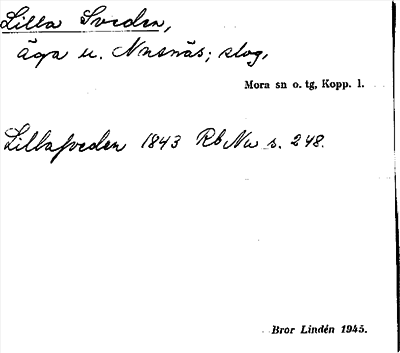 Lilla Sveden,
äga u. Nusnäs; slog.
Mora sn o. tg, Kopp. l.
Lillasveden 1843 Rb Nu s. 248.
Bror Lindén 1945.